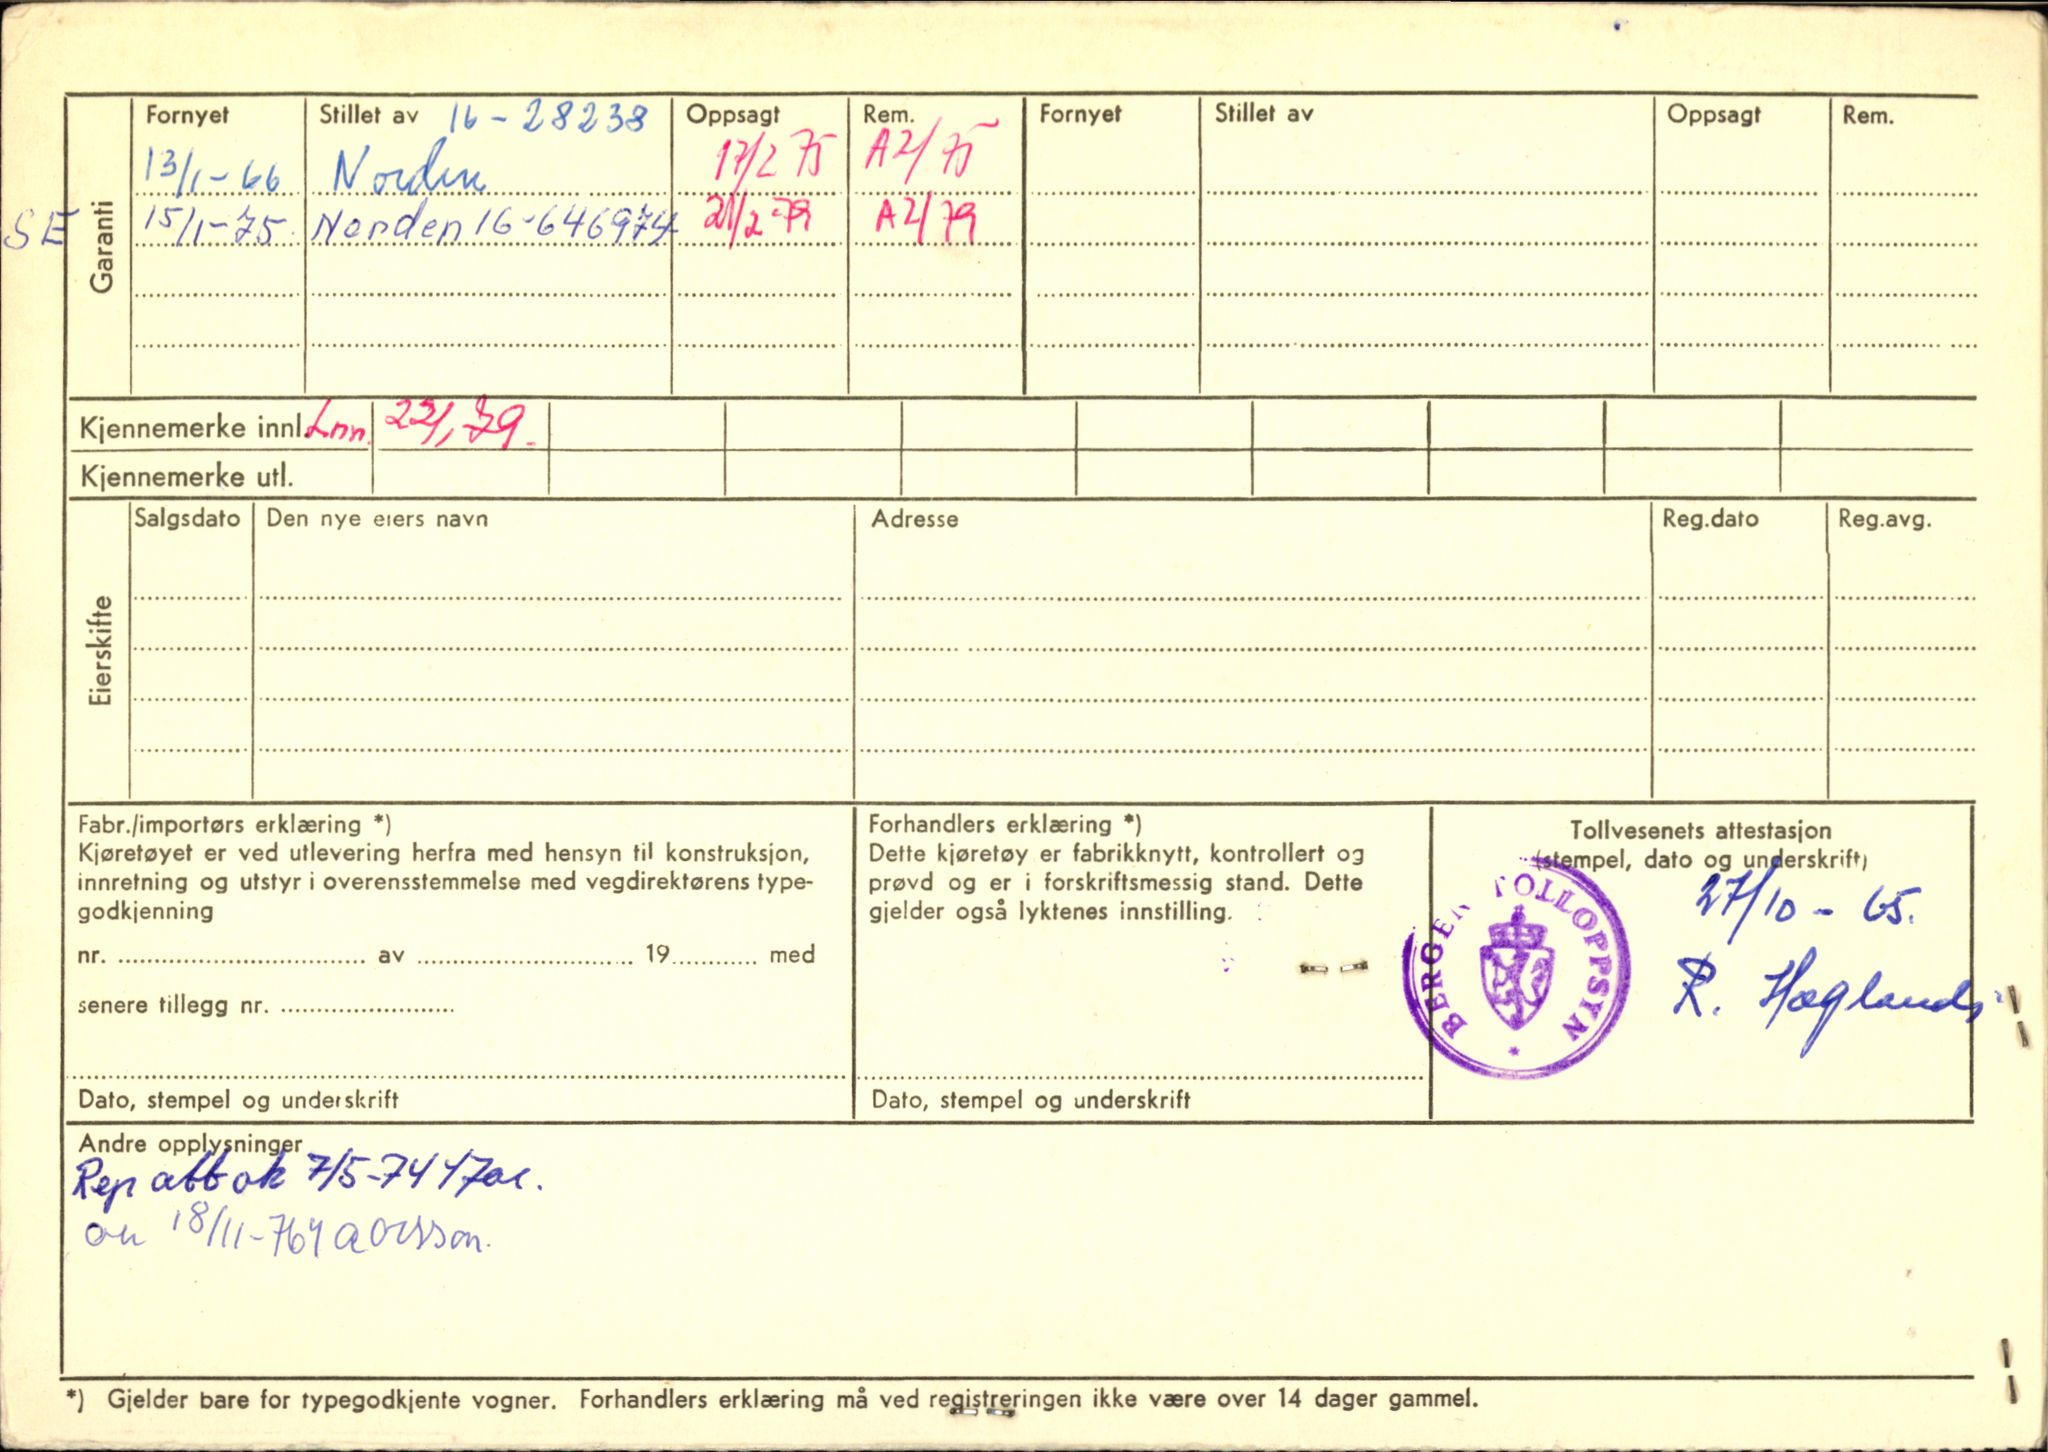 Fornyet Stillet av 16-28238 Oppsagt Rem. Fornyet Stillet av Oppsagt Rem.
13/1-66 Norden 17/2 75 A2/75
SE 15/1-75. Norden 16-646974 21/2-79 A2/79
Garanti
Kjennemerke innl. Inn. 22/1 79.
Kjennemerke utl.
Salgsdato Den nye eiers navn Adresse Reg.dato Reg.avg.
Eierskifte
Fabr./importørs erklæring *)
Kjøretøyet er ved utlevering herfra med hensyn til konstruksjon,
innretning og utstyr i overensstemmelse med vegdirektørens type-
godkjenning
nr. av 19 med
senere tillegg nr.
Dato, stempel og underskrift
Forhandlers erklæring *)
Dette kjøretøy er fabrikknytt, kontrollert og
prøvd og er i forskriftsmessig stand. Dette
gjelder også lyktenes innstilling.
Dato, stempel og underskrift
Tollvesenets attestasjon
(stempel, dato og underskrift)
27/10-65.
R. Hæglands
BERGEN TOLLOPPSYN *
Andre opplysninger
Rep att ok 7/5-74
18/11-76
*) Gjelder bare for typegodkjente vogner. Forhandlers erklæring må ved registreringen ikke være over 14 dager gammel.